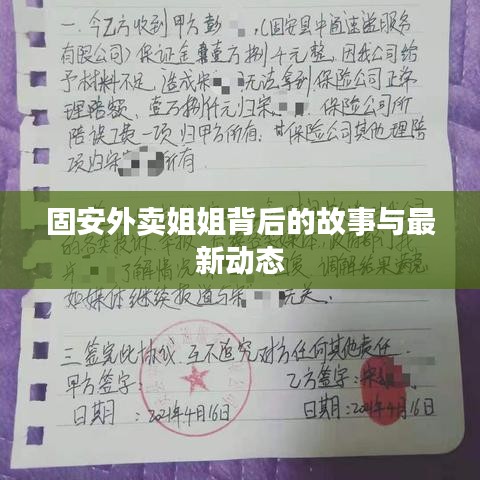 一.今乙方收到甲方彭 ,(固安县中通速溢服务
有限公司)保证金壹万捌仟元整,因我公司给
予材料不足,造成宋 无法拿到保险公司正常
理赔额,壹万捌仟元归宋 .保险公司所
陪误工费一项归甲方所有.其保险公司其他理陪
项归宋 所有.
固安外卖姐姐背后的故事与最
新动态
了解情况 调解结果满意
如媒体继续报道与宋 无关.
三.签完此协议,互不追究对方任何其他责任.
甲方签字: 乙方签字:宋
日期:2021年4月16日 日期:2021年4月16日